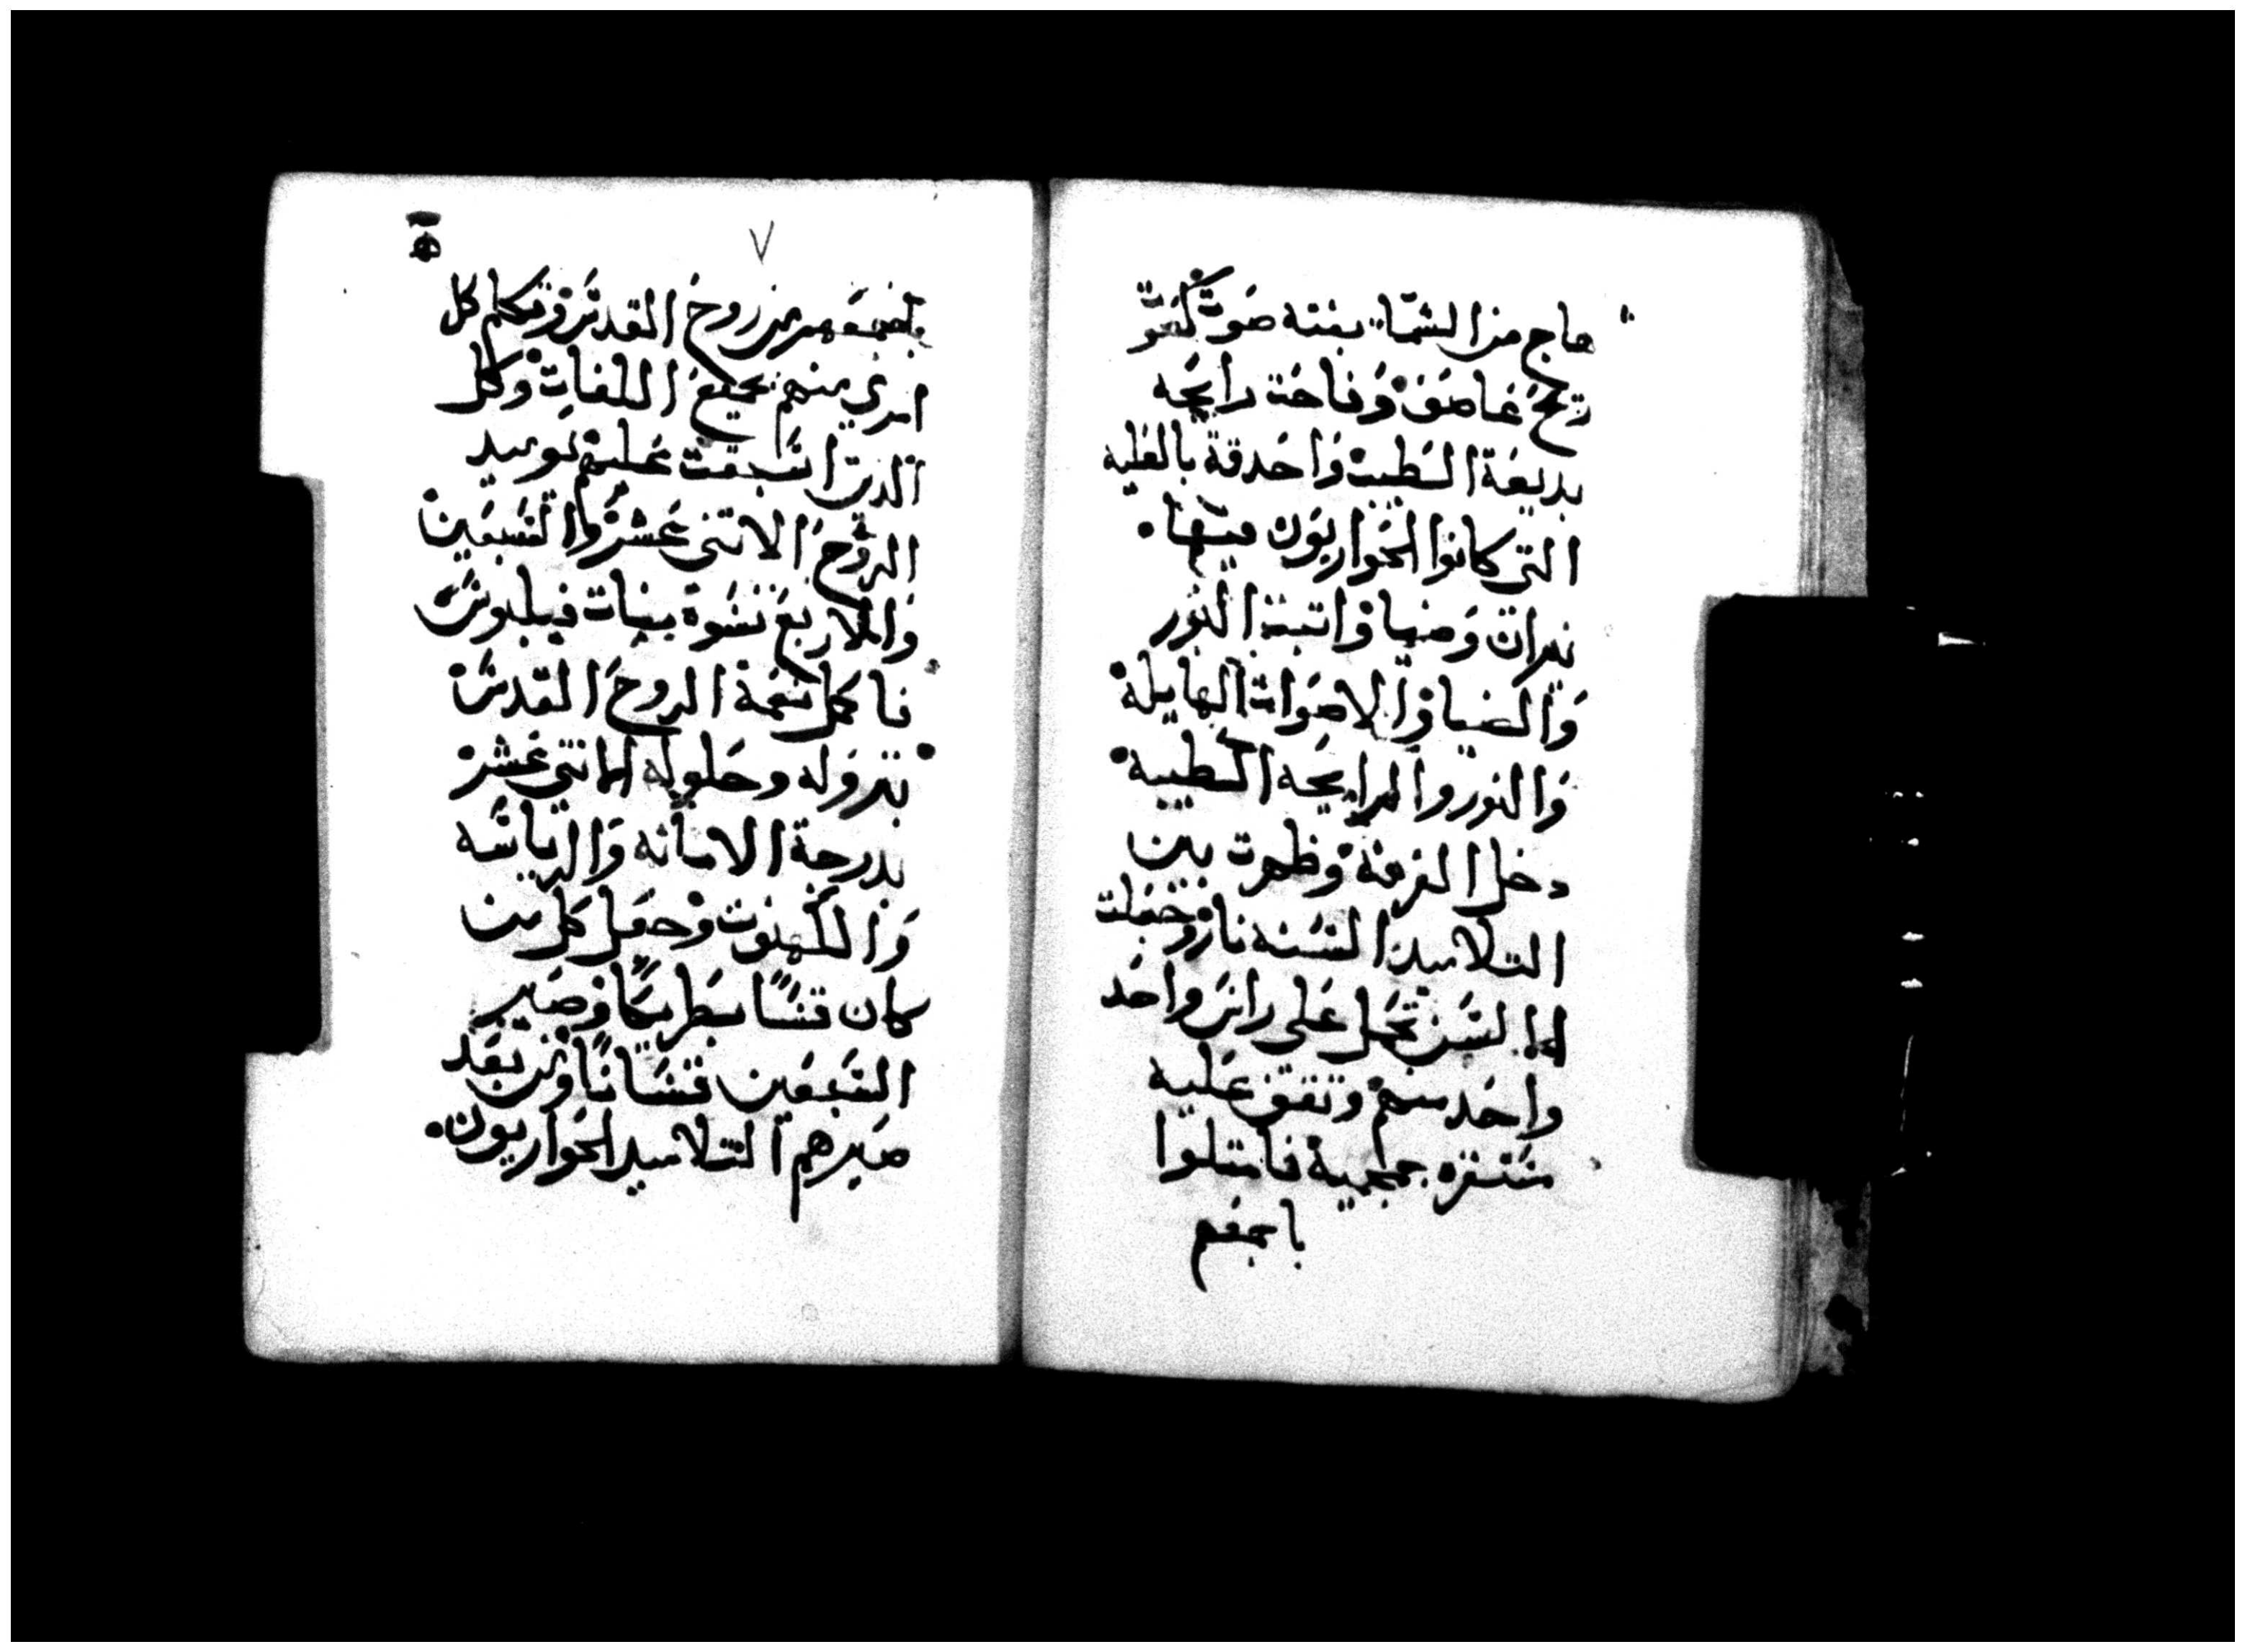 هاج من السّماء بغته صوت كصوت
ريح عاصف وفاحت رايحه
بديعة الطيب واحدقة بالعليه
التي كانوا الحواريون فيها.
نيران وضيا واتبتت النور
والضيا والاصوات الهايلة
والنور والرايحه الطيبه
دخل الغرفة وظهرت بين
التلاميذ السنه نار وجعلت
السن تحل على راس واحد
واحد منهم وتتفق عليه
مستنره جحيمية فامتلوا
باجمعهم
٧
باجمعهم من روح القدس وتكلم كل
امري منهم بجميع اللغات وكل
الذي سبقت عليهم توييد
الروح الاتني عشر والسبعين
والاربع نسوة بنات فيلبوس
فاكمل نعمة الروح القدس
بنزوله وحلوله اتني عشر
بدرجة الامانه والرياسه
والكهنوت وجعل كل من
كان قسًا بطريكًا وصير
السبعين قسانًا ومن بعد
صيرهم التلاميذ الحواريون.